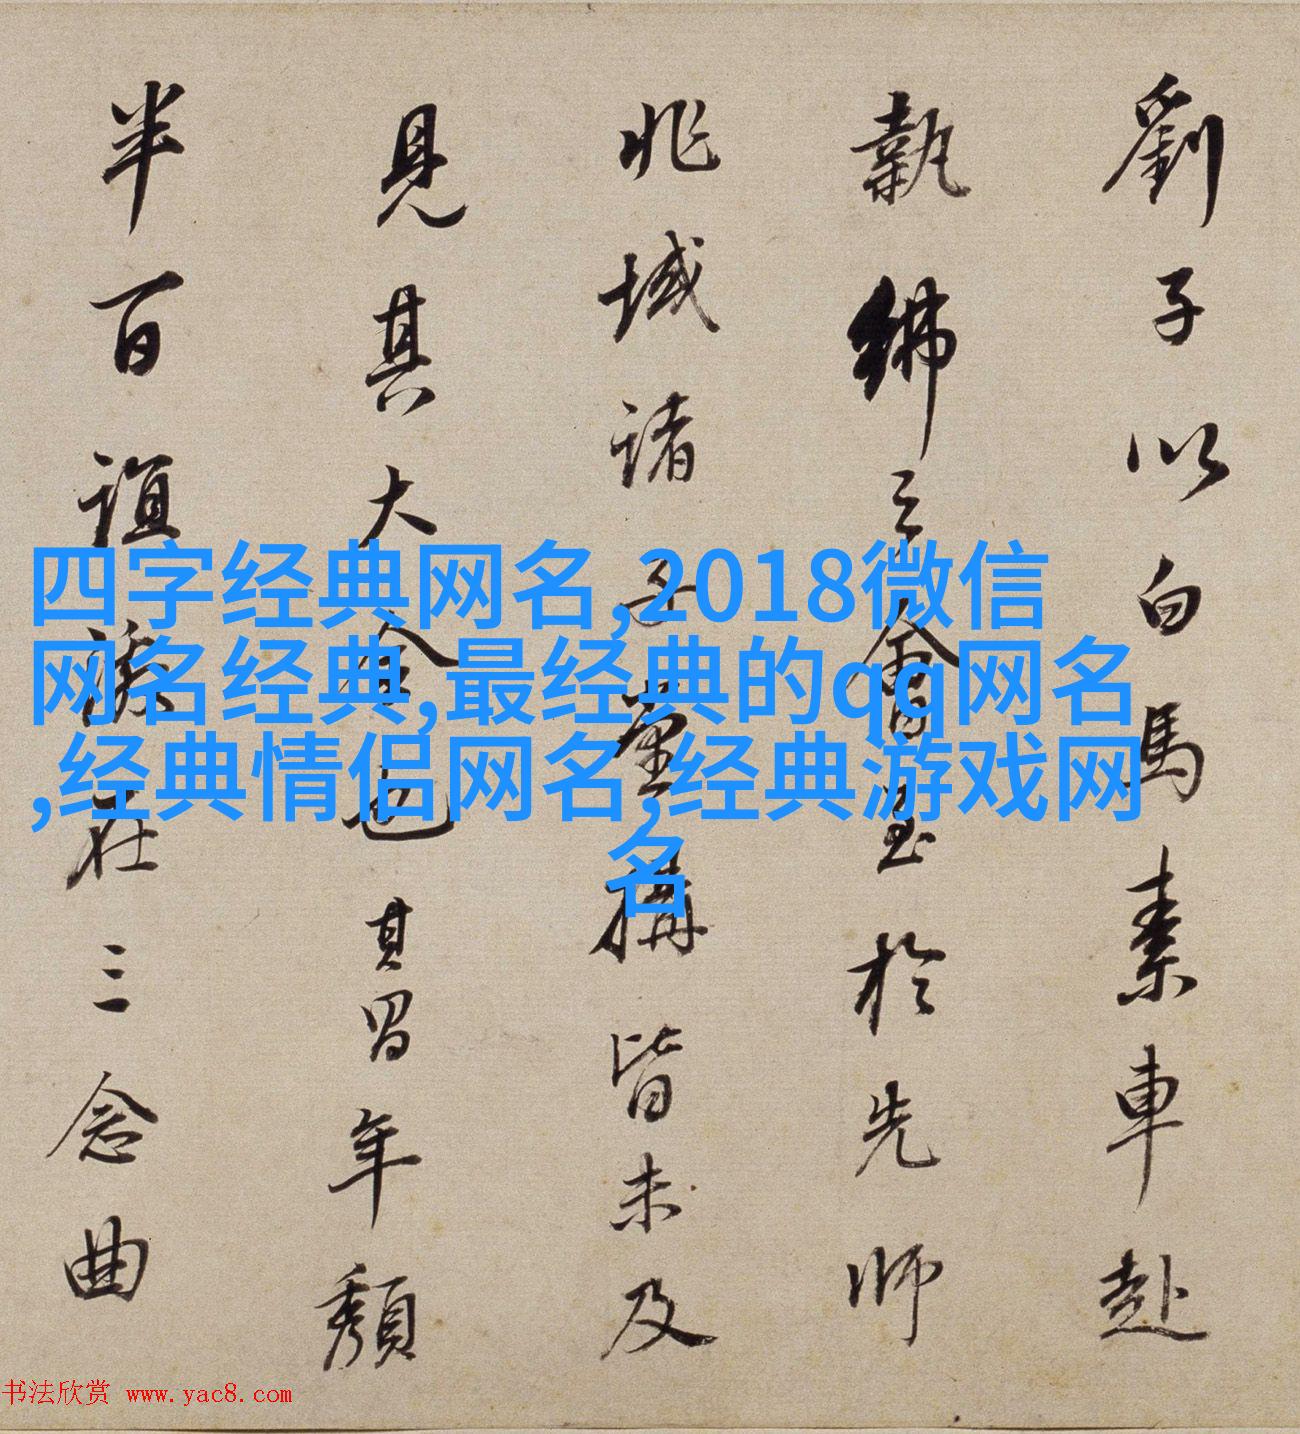 劉子以白馬素車赴
執紼之會至於先師
兆域諸子堂搆皆未及
見其大也其年頹
半百誼在三念曲
四字经典网名,2018微信
网名经典,最经典的qq网名
,经典情侣网名,经典游戏网
名
书法欣赏 www.yac8.com